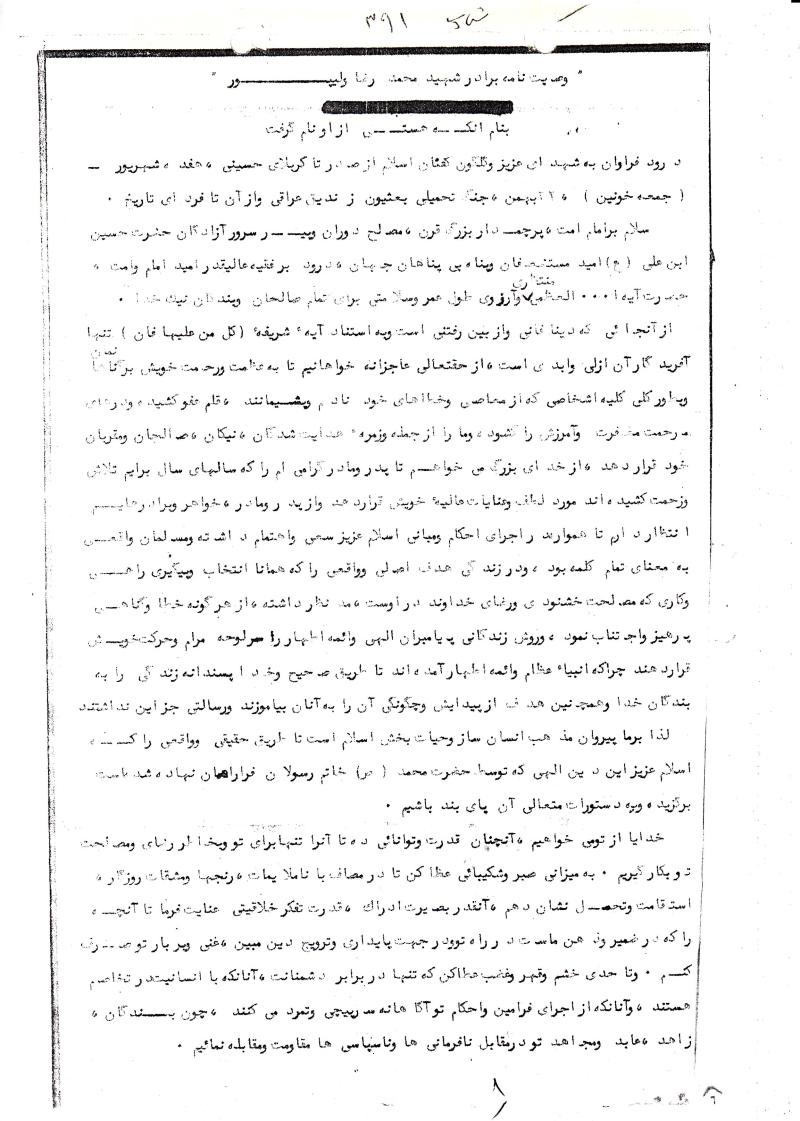 ۳۹۱
" وصیت نامه برادر شهید محمد رضا ولیپـــــور "
بنام آنکـــه هستـــی از او نام گرفت
درود فراوان به شهدای عزیز وگلگون کفنان اسلام از صدر تا کربلای حسینی ، هفده شهریور ــ
( جمعه خونین ) ، ۲۲ بهمن ، جنگ تحمیلی بعثیون زندیق عراقی وازآن تا فردای تاریخ ۰
سلام برامام امت ، پرچمــدار بزرگ قرن ، مصلح دوران وپیـــر سرور آزادگان حضرت حسین
ابن علی (ع) امید مستضعفان وپناه بی پناهان جهان ، درود برفقیه عالیقدر امید امام وامت ،
حضرت آیه ا۰۰۰ العظمی منتظری وآرزوی طول عمر وسلامتی برای تمام صالحان وبندگان نیک خدا ۰
از آنجائی که دنیا فانی وازبین رفتنی است وبه استناد آیه ٔ شریفه ٔ (کل من علیها فان ) تنها
آفریدگار آن ازلی وابدی است ، از حقتعالی عاجزانه خواهانیم تا به عظمت ورحمت خویش برگناهانمان
وبطورکلی کلیه اشخاصی که از معاصی وخطاهای خود نادم وپشـیمانند ، قلم عفو کشیده ودرهای
مرحمت مغفرت وآمرزش را گشوده وما را از جمله وزمره ٔ هدایت شدگان ، نیکان ، صالحان ومقربان
خود قرار دهد ، از خدای بزرگ می خواهـم تا پدر ومادر گرامی ام را که سالهای سال برایم تلاش
وزحمت کشیده اند مورد لطف وعنایات عالیه ٔ خویش قرار دهد وازپدر ومادر ، خواهر وبرادرهایــم
انتظار دارم تا همواره در اجرای احکام ومبانی اسلام عزیز سعی واهتمام داشته ومسلمان واقعــی
به معنای تمام کلمه بود ، ودر زندگی هدف اصلی وواقعی را که همانا انتخاب وپیگیری راهــی
وکاری که مصلحت خشنودی ورضای خداوند در اوست ، مد نظر داشته ، از هرگونه خطا وگناهــی
پرهیز واجتناب نمود ، وروش زندگانی پیامبران الهی وائمه اطهار را سرلوحه مرام وحرکت خویــش
قرار دهند چراکه انبیاء عظام وائمه اطهار آمده اند تا طریق صحیح وخدا پسندانه زندگی را به
بندگان خدا وهمچنین هدف از پیدایش وچگونگی آن را به آنان بیاموزند ورسالتی جز این نداشتند
لذا برما پیروان مذهب انسان ساز وحیات بخش اسلام است تا طریق حقیقی وواقعی را کـــه
اسلام عزیز این دین الهی که توسط حضرت محمد (ص) خاتم رسولان فراراهمان نهاده شده است
برگزیده وبه دستورات متعالی آن پای بند باشیم ۰
خدایا از تومی خواهیم ، آنچنان قدرت وتوانائی ده تا آنرا تنها برای تو وبخاطر رضای ومصلحت
تو بکار گیریم ۰ به میزانی صبر وشکیبائی عطا کن تا در مصاف با ناملایمات ، رنجها ومشقات روزگار ،
استقامت وتحمــل نشان دهم ، آنقدر بصیرت ادراک ، قدرت تفکر خلاقیتی عنایت فرما تا آنچـــه
را که در ضمیر وذهن ماست در راه تو ودر جهت پایداری وترویج دین مبین ، غنی وپربار تو صــرف
کنــم ۰ وتا حدی خشم وقهر وغضب عطا کن که تنها در برابر دشمنانت ، آنانکه با انسانیت در تخاصم
هستند ، وآنانکه از اجرای فرامین واحکام تو آگاهانه سرپیچی وتمرد می کنند ، چون بـــندگان ،
زاهد ، عابد ومجاهد تو درمقابل نافرمانی ها وناسپاسی ها مقاومت ومقابله نمائیم ۰